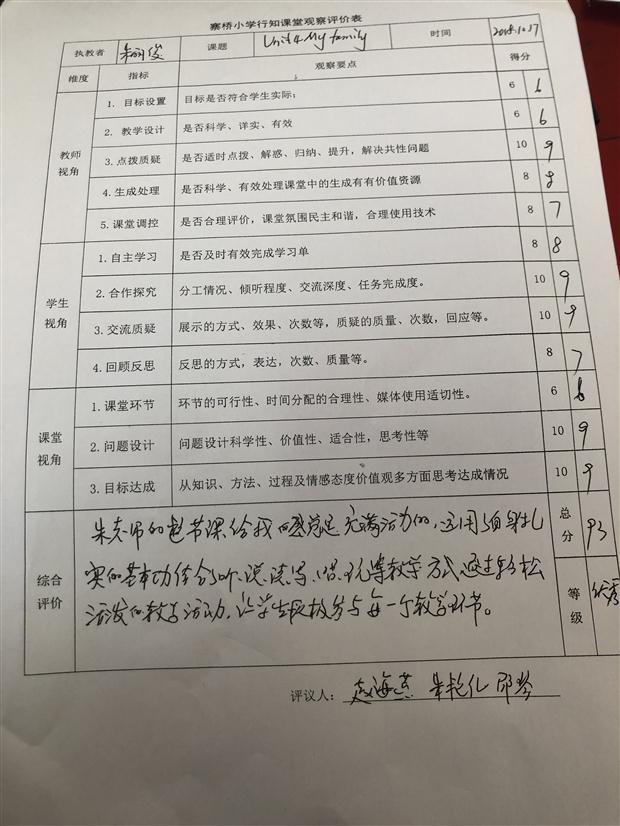 寨桥小学行知课堂观察评价表
执教者 朱丽俊 课题 Unit 4 My family 时间 2018.10.17
维度 指标 观察要点 得分
教师视角 1. 目标设置 目标是否符合学生实际; 6 6
2. 教学设计 是否科学、详实、有效 6 6
3.点拨质疑 是否适时点拨、解惑、归纳、提升，解决共性问题 10 9
4.生成处理 是否科学、有效处理课堂中的生成有有价值资源 8 8
5.课堂调控 是否合理评价，课堂氛围民主和谐，合理使用技术 8 7
学生视角 1.自主学习 是否及时有效完成学习单 8 8
2.合作探究 分工情况、倾听程度、交流深度、任务完成度。 10 9
3.交流质疑 展示的方式、效果、次数等，质疑的质量、次数，回应等。 10 9
4.回顾反思 反思的方式，表达，次数、质量等。 8 7
课堂视角 1.课堂环节 环节的可行性、时间分配的合理性、媒体使用适切性。 6 6
2.问题设计 问题设计科学性、价值性、适合性，思考性等 10 9
3.目标达成 从知识、方法、过程及情感态度价值观多方面思考达成情况 10 9
综合评价 朱老师的这节课给我的感觉是充满活力的，运用自身扎
实的基本功结合听、说、读、写、唱、玩等教学方式，通过轻松
活泼的教学活动，让学生积极参与每一个教学环节。
总分 93
等级 优秀
评议人： 赵海燕 朱艳化 邵琴